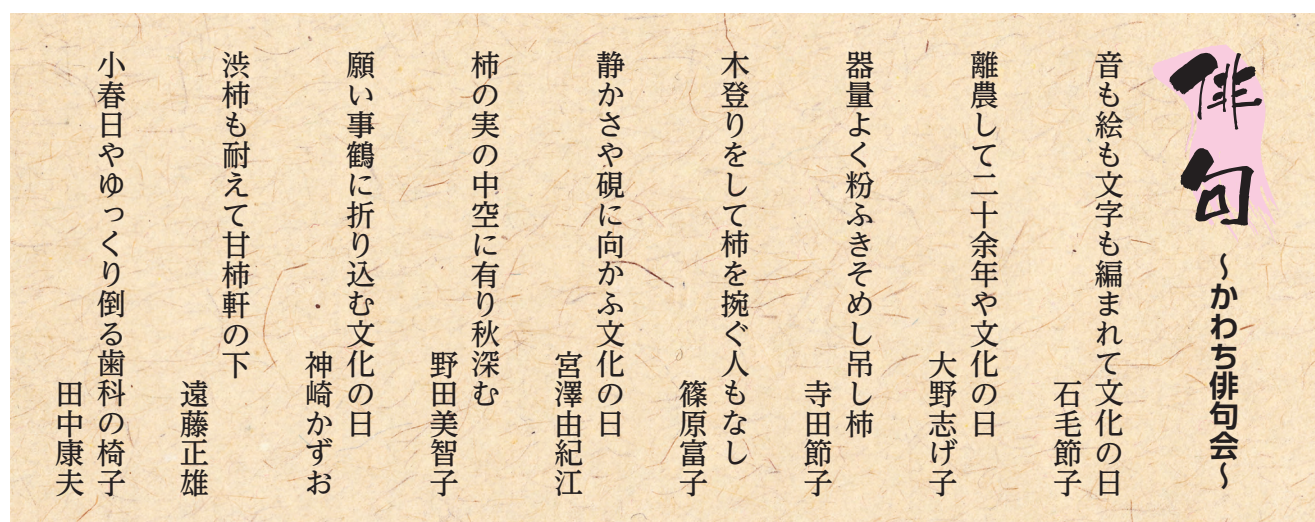 俳句
～かわち俳句会～
音も絵も文字も編まれて文化の日
石毛節子
離農して二十余年や文化の日
大野志げ子
器量よく粉ふきそめし吊し柿
寺田節子
木登りをして柿を捥ぐ人もなし
篠原富子
静かさや硯に向かふ文化の日
宮澤由紀江
柿の実の中空に有り秋深む
野田美智子
願い事鶴に折り込む文化の日
神崎かずお
渋柿も耐えて甘柿軒の下
遠藤正雄
小春日やゆっくり倒る歯科の椅子
田中康夫